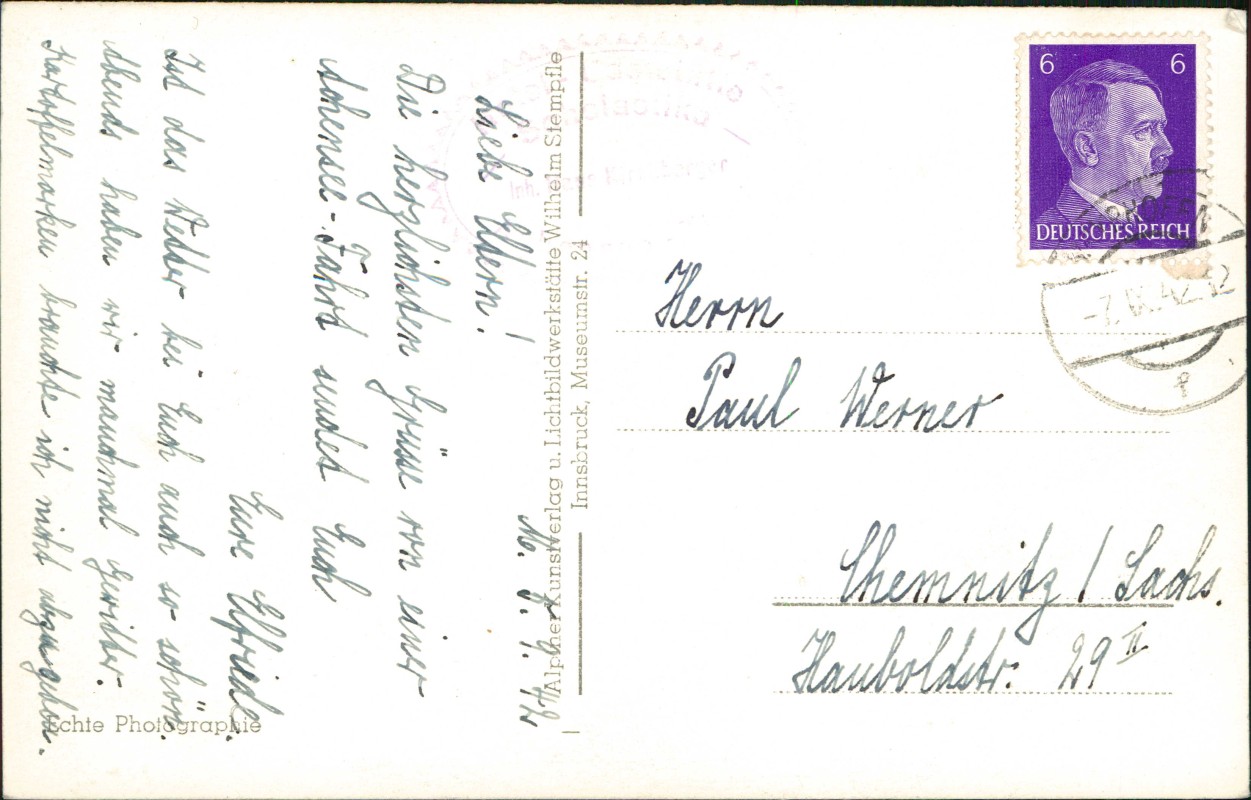 M. 7. 9. 42
Liebe Eltern!
Die herzlichsten Grüsse von einer
Achensee-Fahrt sendet Euch
Eure Elfriede.
Ist das Wetter bei Euch auch so schön.
Abends haben wir manchmal Gewitter.
Kartoffelmarken brauchte ich nicht abzugeben.
Echte Photographie
Alpiner Kunstverlag u. Lichtbildwerkstätte Wilhelm Stempfle
Innsbruck, Museumstr. 24
6 6
DEUTSCHES REICH
-7.IX.42.12
Herrn
Paul Werner
Chemnitz / Sachs.
Hauboldstr. 29 II